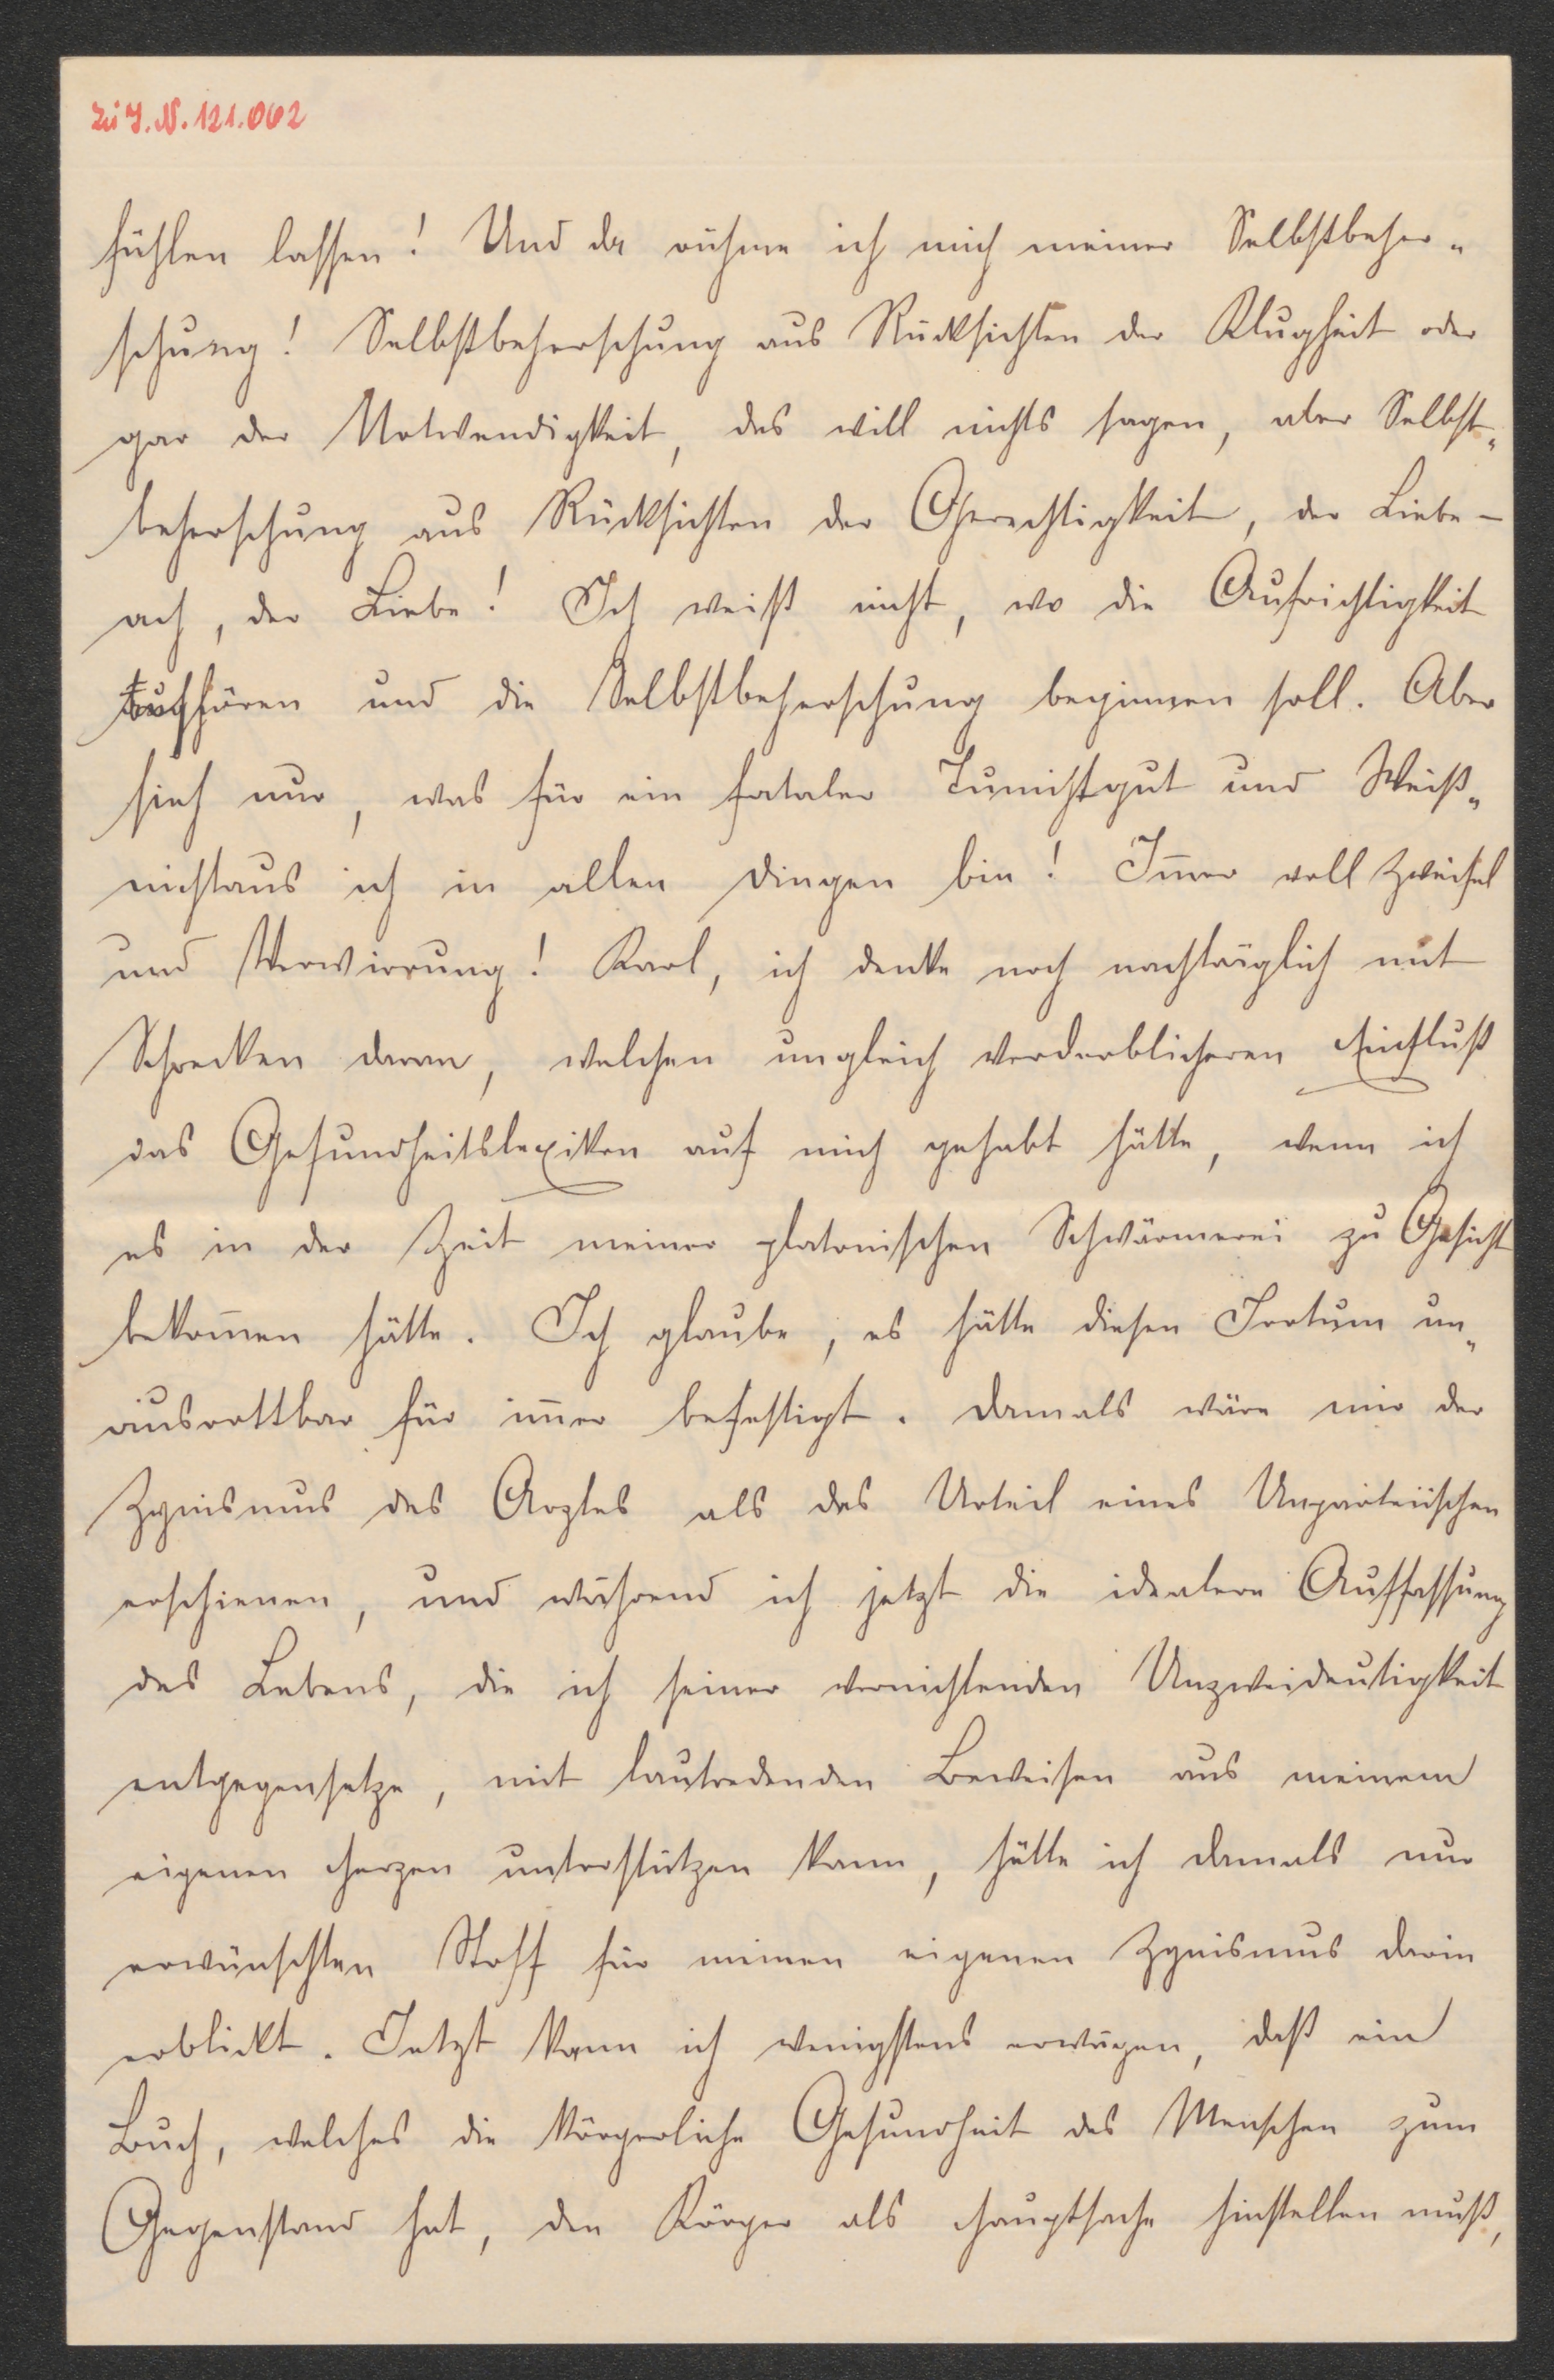 Zu J. N. 121.062
fühlen lassen! Und da rühme ich mich meiner Selbstbeher-
schung! Selbstbeherschung aus Rücksichten der Klugheit oder
gar der Notwendigkeit, das will nichts sagen, aber Selbst-
beherschung aus Rücksichten der Gerechtigkeit, der Liebe –
ach, der Liebe! Ich weiß nicht, wo die Aufrichtigkeit
aufhören und die Selbstbeherschung beginnen soll. Aber
sieh nur, was für ein fataler Tunichtgut und Weiß-
nichtaus ich in allen Dingen bin! Im̅er voll Zweifel
und Verwirrung! Karl, ich denke noch nachträglich mit
Schrecken daran, welchen ungleich verderblicheren Einfluß
das Gesundheitslexikon auf mich gehabt hätte, wenn ich
es in der Zeit meiner platonischen Schwärmerei zu Gesicht
bekom̅en hätte. Ich glaube, es hätte diesen Irrtum un-
ausrottbar für im̅er befestigt. Damals wäre mir der
Zynismus des Arztes als das Urteil eines Unparteiischen
erschienen, und während ich jetzt die idealere Auffassung
des Lebens, die ich seiner vernichtenden Unzweideutigkeit
entgegensetze, mit lautredenden Beweisen aus meinem
eigenen Herzen unterstützen kann, hätte ich damals nur
erwünschten Stoff für meinen eigenen Zynismus darin
erblickt. Jetzt kann ich wenigstens erwägen, daß ein
Buch, welches die körperliche Gesundheit des Menschen zum
Gegenstand hat, den Körper als Hauptsache hinstellen muß,